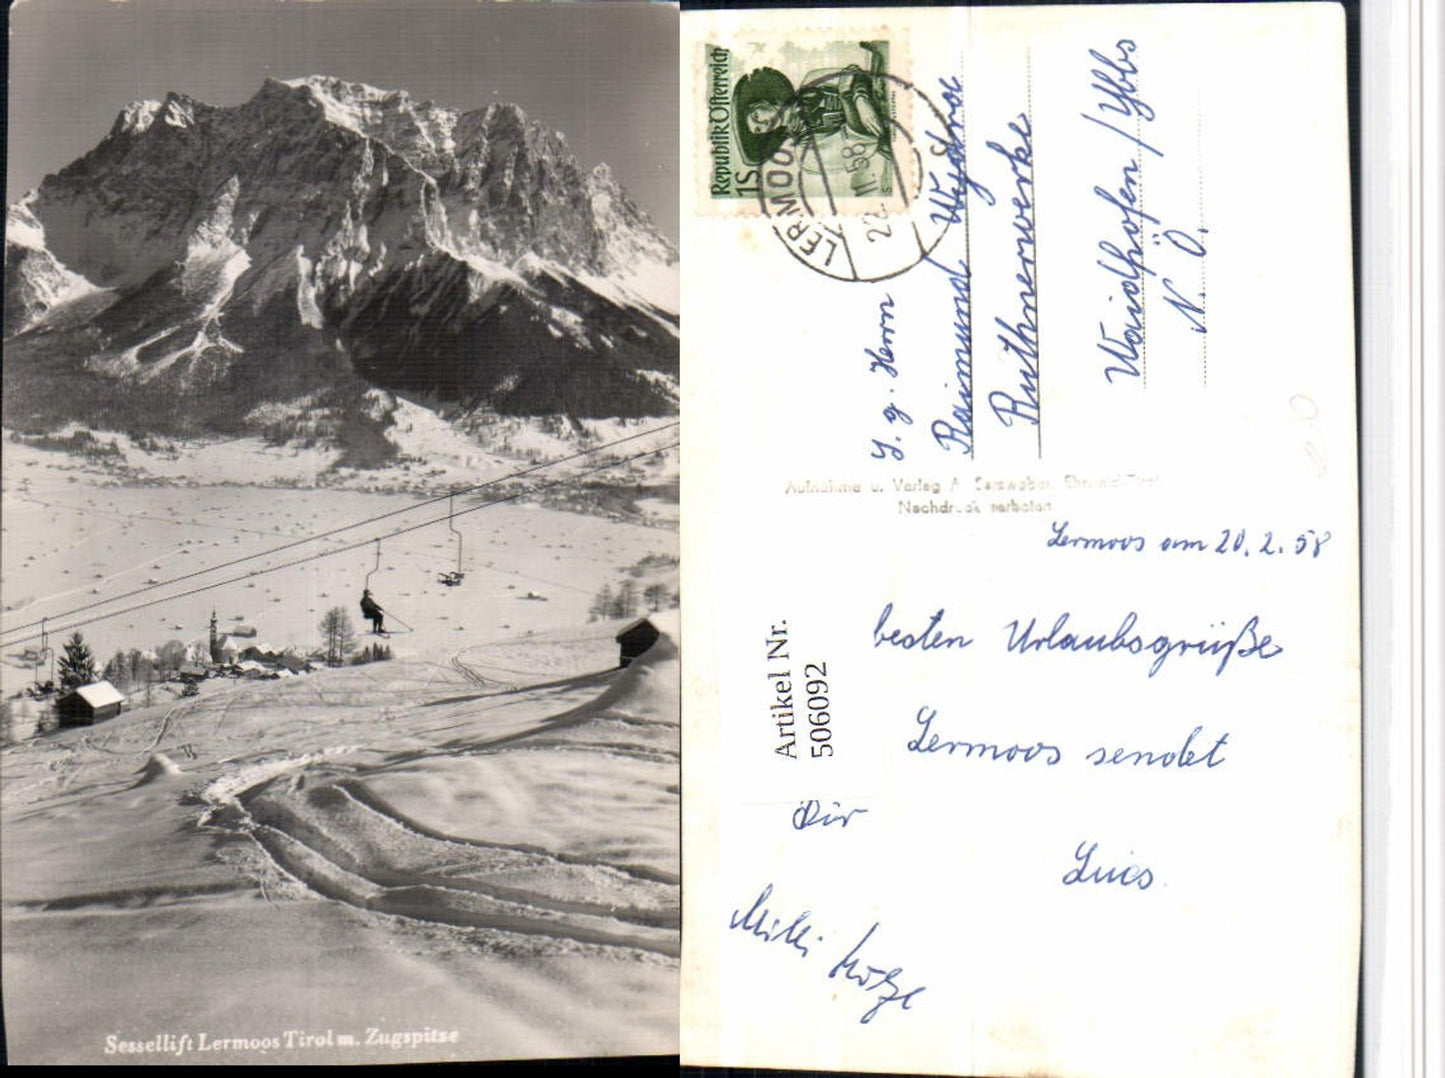 Sessellift Lermoos Tirol m. Zugspitze
Republik Österreich
1S
LERMOOS
22. II. 58
S. g. Herrn
Raimund Wydra
Ruthnerwerke
Waidhofen / Ybbs
N. Ö.
Aufnahme u. Verlag A. Somweber, Ehrwald Tirol
Nachdruck verboten
Lermoos am 20. 2. 58
besten Urlaubsgrüße
Lermoos sendet
Dir
Milli
Artikel Nr.
506092